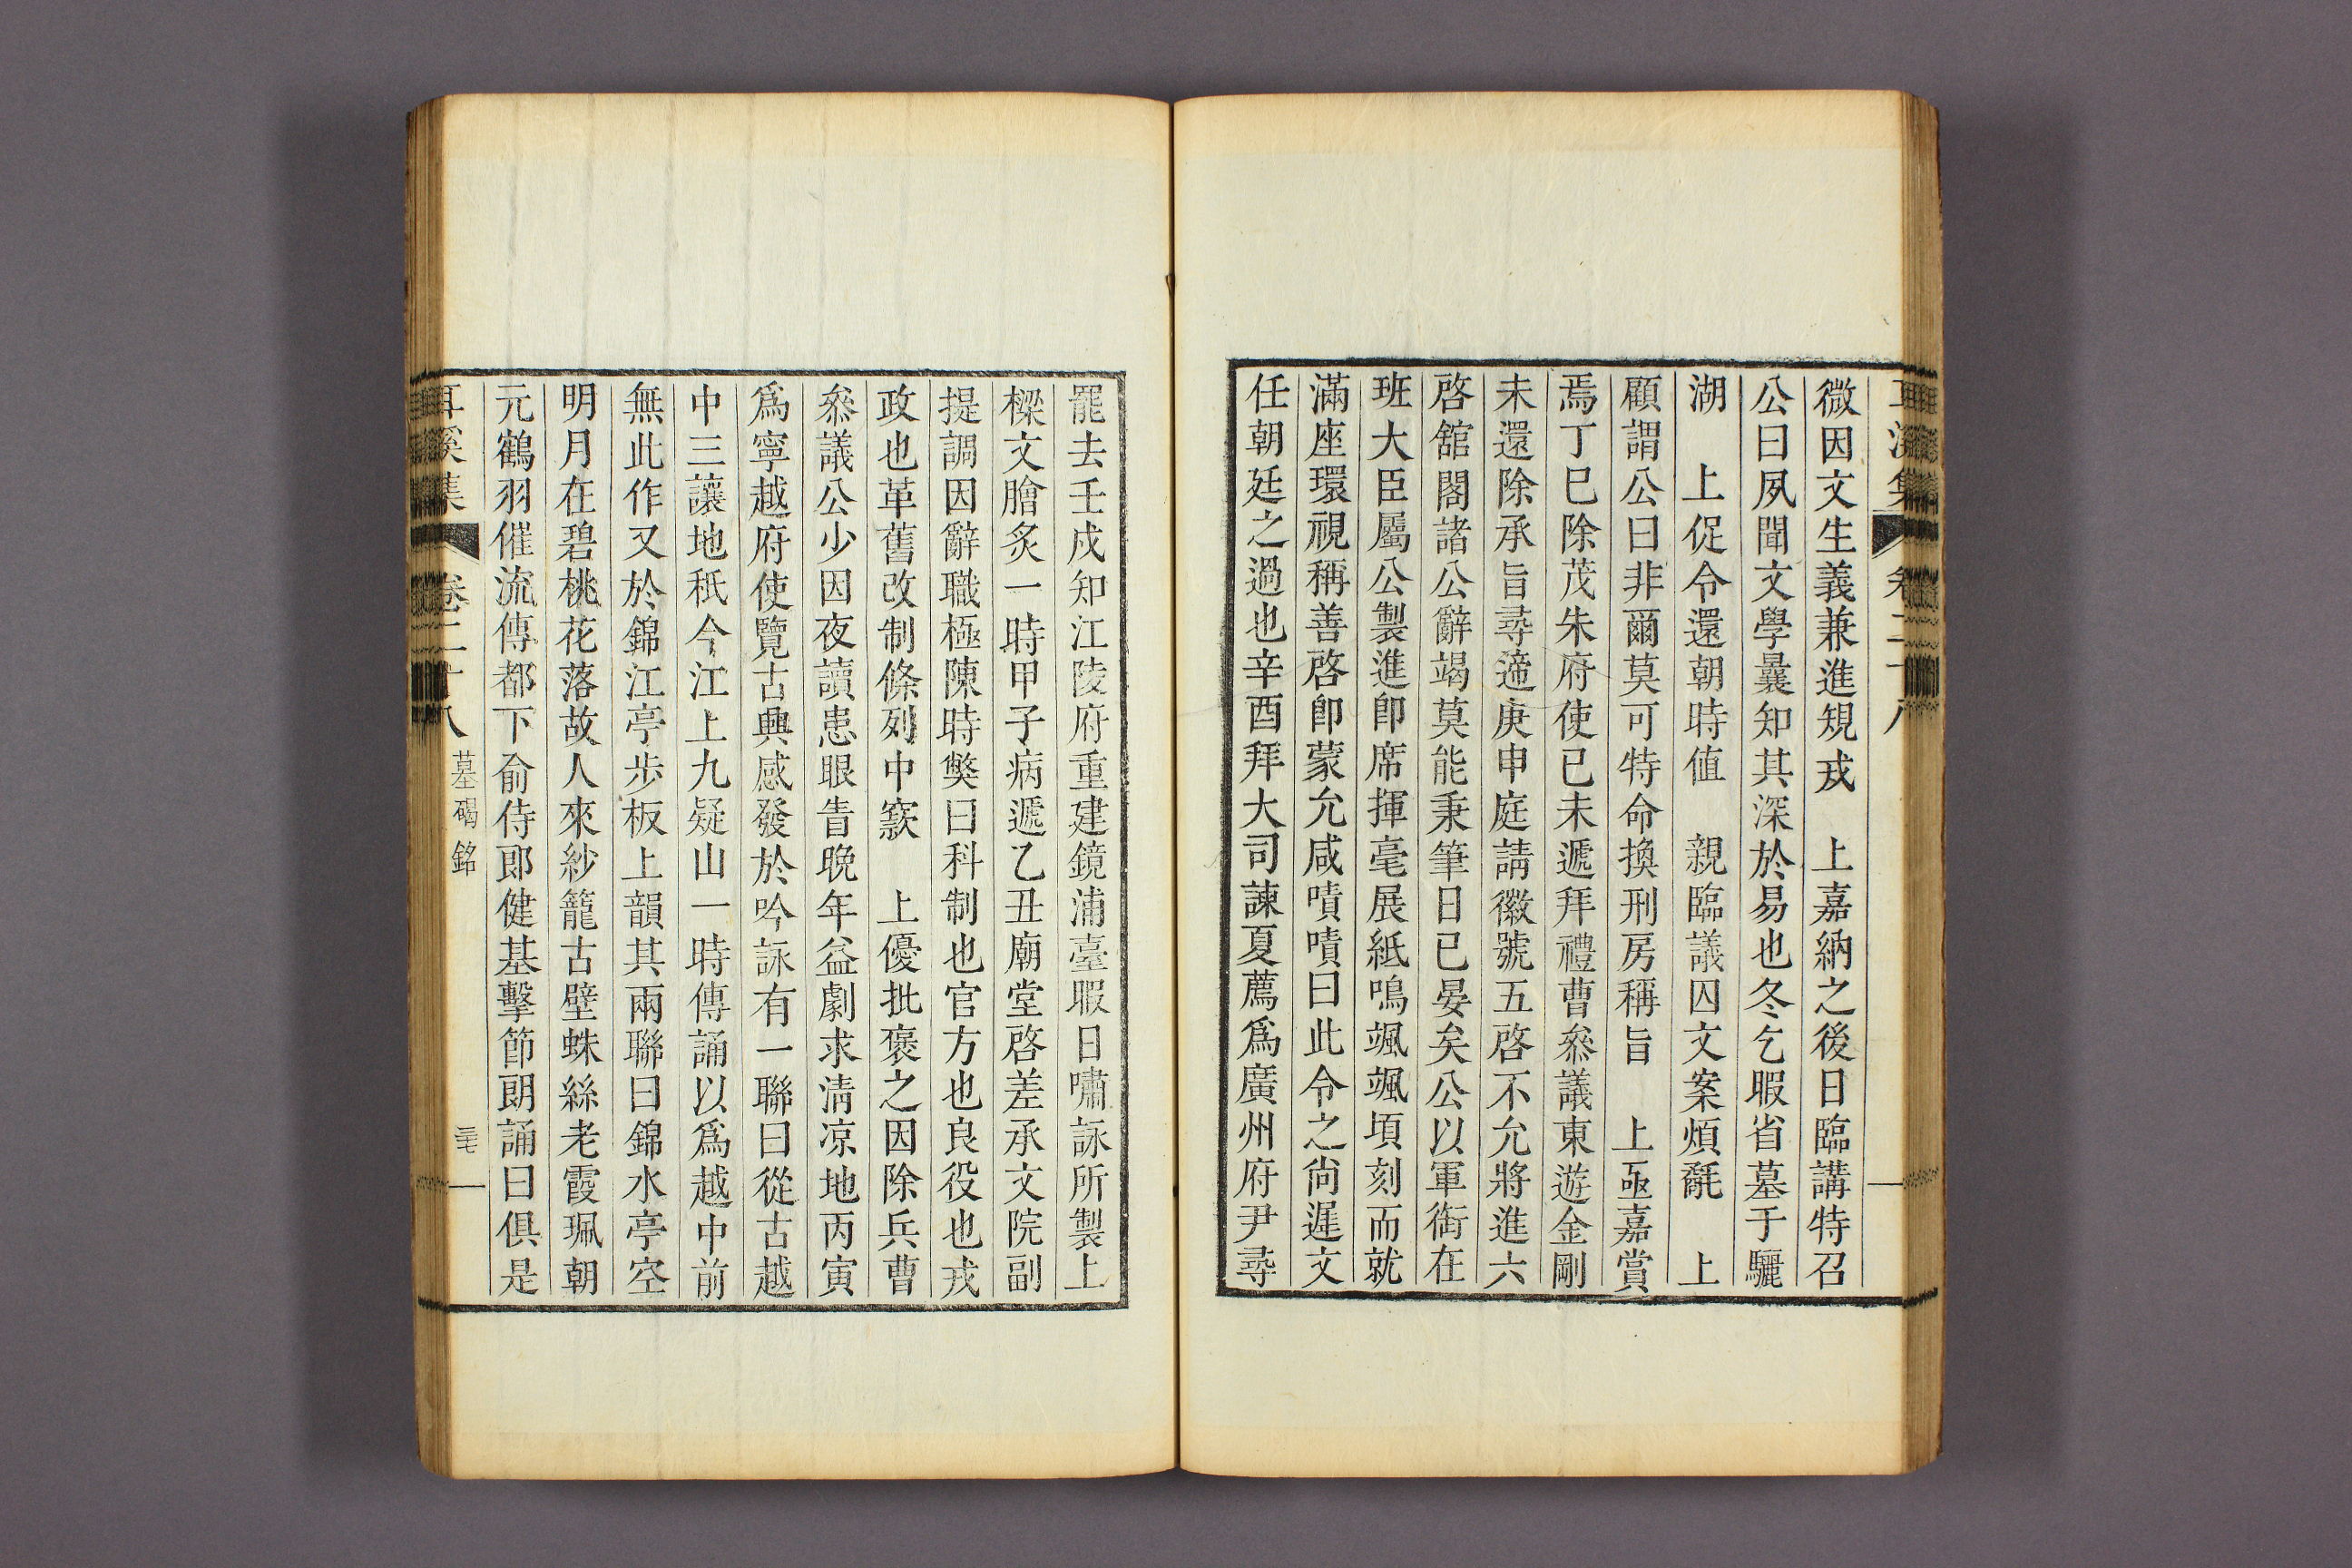 微因文生義兼進規戒　上嘉納之後日臨講特召
公曰夙聞文學曩知其深於易也冬乞暇省墓于驪
湖　上促令還朝時值　親臨議囚文案煩氄　上
顧謂公曰非爾莫可特命換刑房稱旨　上亟嘉賞
焉丁巳除茂朱府使己未遞拜禮曹叅議東遊金剛
未還除承旨尋遆庚申庭請徽號五啓不允將進六
啓舘閣諸公辭竭莫能秉筆日已晏矣公以軍銜在
班大臣屬公製進卽席揮毫展紙鳴颯颯頃刻而就
滿座環視稱善啓卽蒙允咸嘖嘖曰此令之尙遲文
任朝廷之過也辛酉拜大司諫夏薦爲廣州府尹尋
罷去壬戌知江陵府重建鏡浦臺暇日嘯詠所製上
樑文膾炙一時甲子病遞乙丑廟堂啓差承文院副
提調因辭職極陳時獘曰科制也官方也良役也戎
政也革舊改制條列中窾　上優批褒之因除兵曹
叅議公少因夜讀患眼眚晩年益劇求淸凉地丙寅
爲寧越府使覽古興感發於吟詠有一聯曰從古越
中三讓地秖今江上九疑山一時傳誦以爲越中前
無此作又於錦江亭步板上韻其兩聯曰錦水亭空
明月在碧桃花落故人來紗籠古壁蛛絲老霞珮朝
元鶴羽催流傳都下俞侍郞健基擊節朗誦曰俱是
耳溪集　卷二十八　墓碣銘　三七